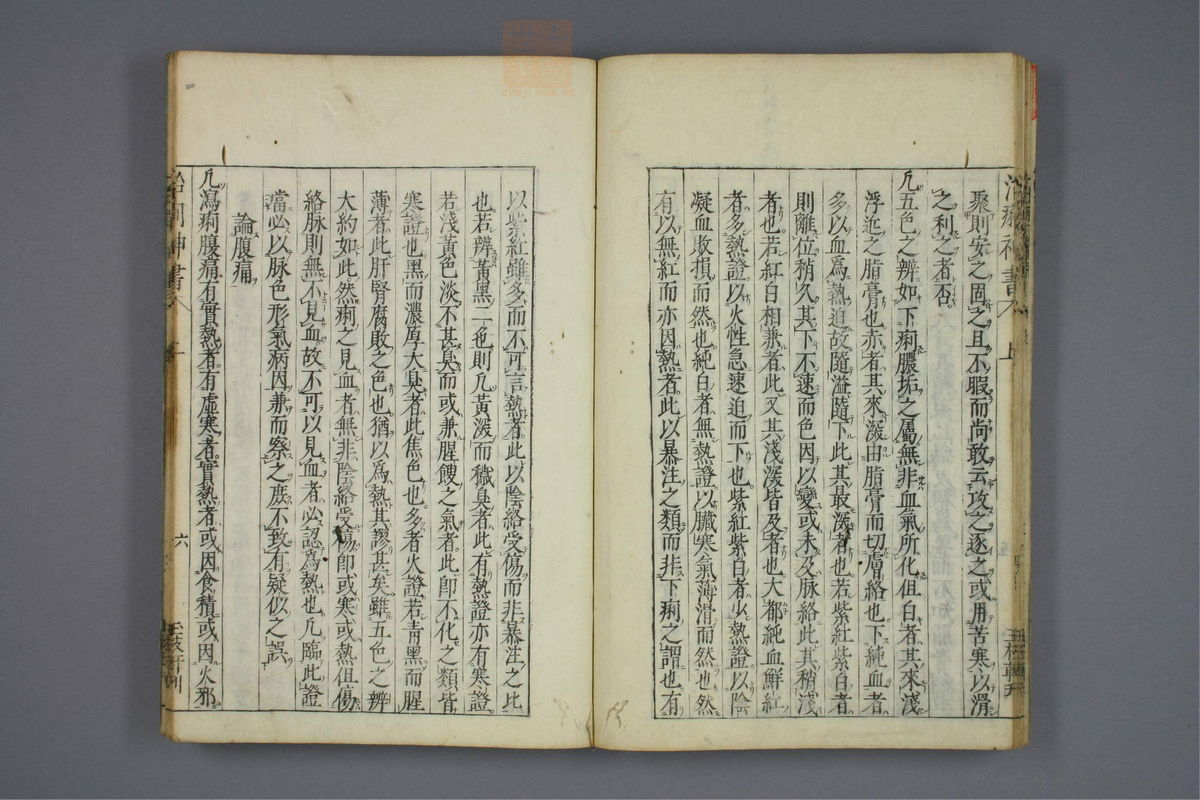 聚則安之固之且不暇而尚敢云攻之逐之或用苦寒以滑
之利之者否
凡五色之辨如下痢膿垢之屬無非血氣所化但白者其來淺
浮近之脂膏也赤者其來深由脂膏而切膚絡也下純血者
多以血爲熱迫故隨溢隨下此其最深者也若紫紅紫白者
則離位稍久其下不速而色因以變或未及脉絡此其稍淺
者也若紅白相兼者此又其淺深皆及者也大都純血鮮紅
者多熱證以火性急速迫而下也紫紅紫白者少熱證以陰
凝血敗損而然也純白者無熱證以臟寒氣薄滑而然也然
有以無紅而亦因熱者此以暴注之類而非下痢之謂也有
以紫紅雖多而不可言熱者此以陰絡受傷而非暴注之比
也若辨黃黑二色則凡黃深而穢臭者此有熱證亦有寒證
若淺黃色淡不甚臭而或兼腥餿之氣者此即不化之類皆
寒證也黑而濃厚大臭者此焦色也多者火證若青黑而腥
薄者此肝腎腐敗之色也猶以爲熱其謬甚矣雖五色之辨
大約如此然痢之見血者無非陰絡受傷即或寒或熱但傷
絡脉則無不見血故不可以見血者必認爲熱也凡臨此證
當必以脉色形氣病因兼而察之庶不致有疑似之誤
論腹痛
凡瀉痢腹痛有實熱者有虛寒者實熱者或因食積或因火邪
六